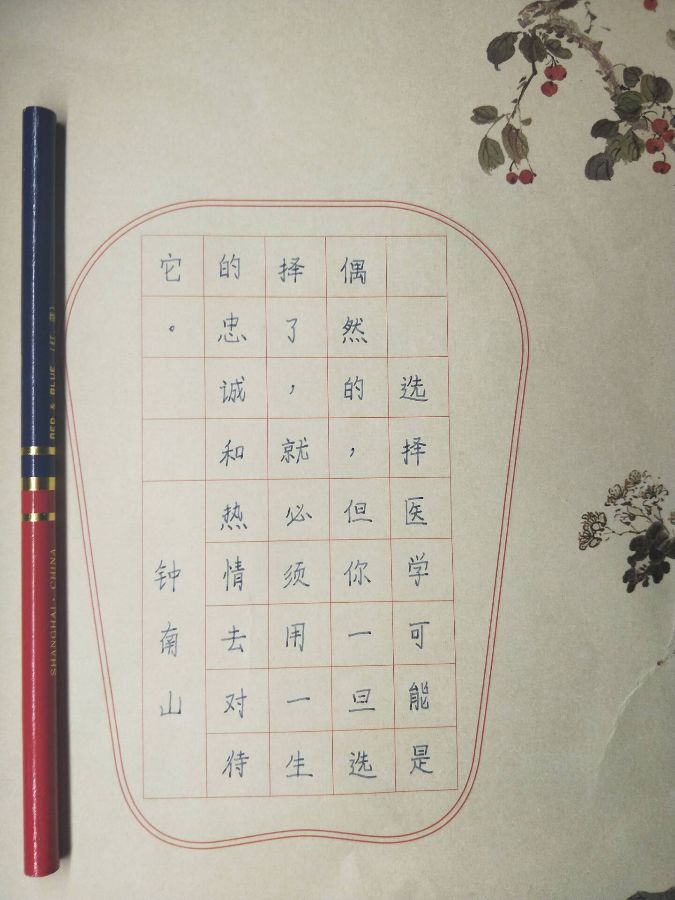 选择医学可能是
偶然的，但你一旦选
择了，就必须用一生
的忠诚和热情去对待
它。
钟南山
RED & BLUE
SHANGHAI, CHINA